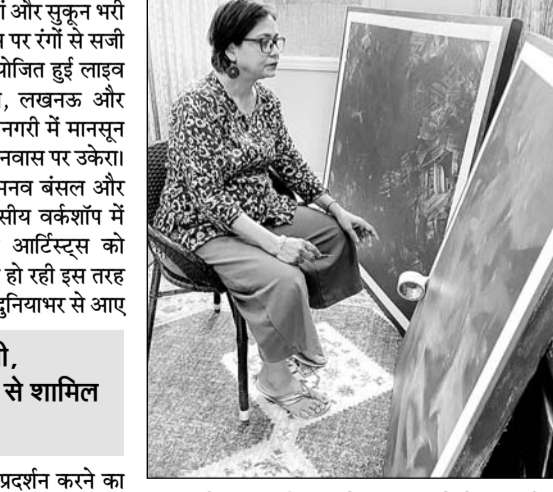 और सुकून भरी
पर रंगों से सजी
हुई लाइव
लखनऊ और
नगरी में मानसून
पर उकेरा।
बंसल और
वर्कशॉप में
आर्टिस्ट्स को
हो रही इस तरह
दुनियाभर से आए
से शामिल
प्रदर्शन करने का